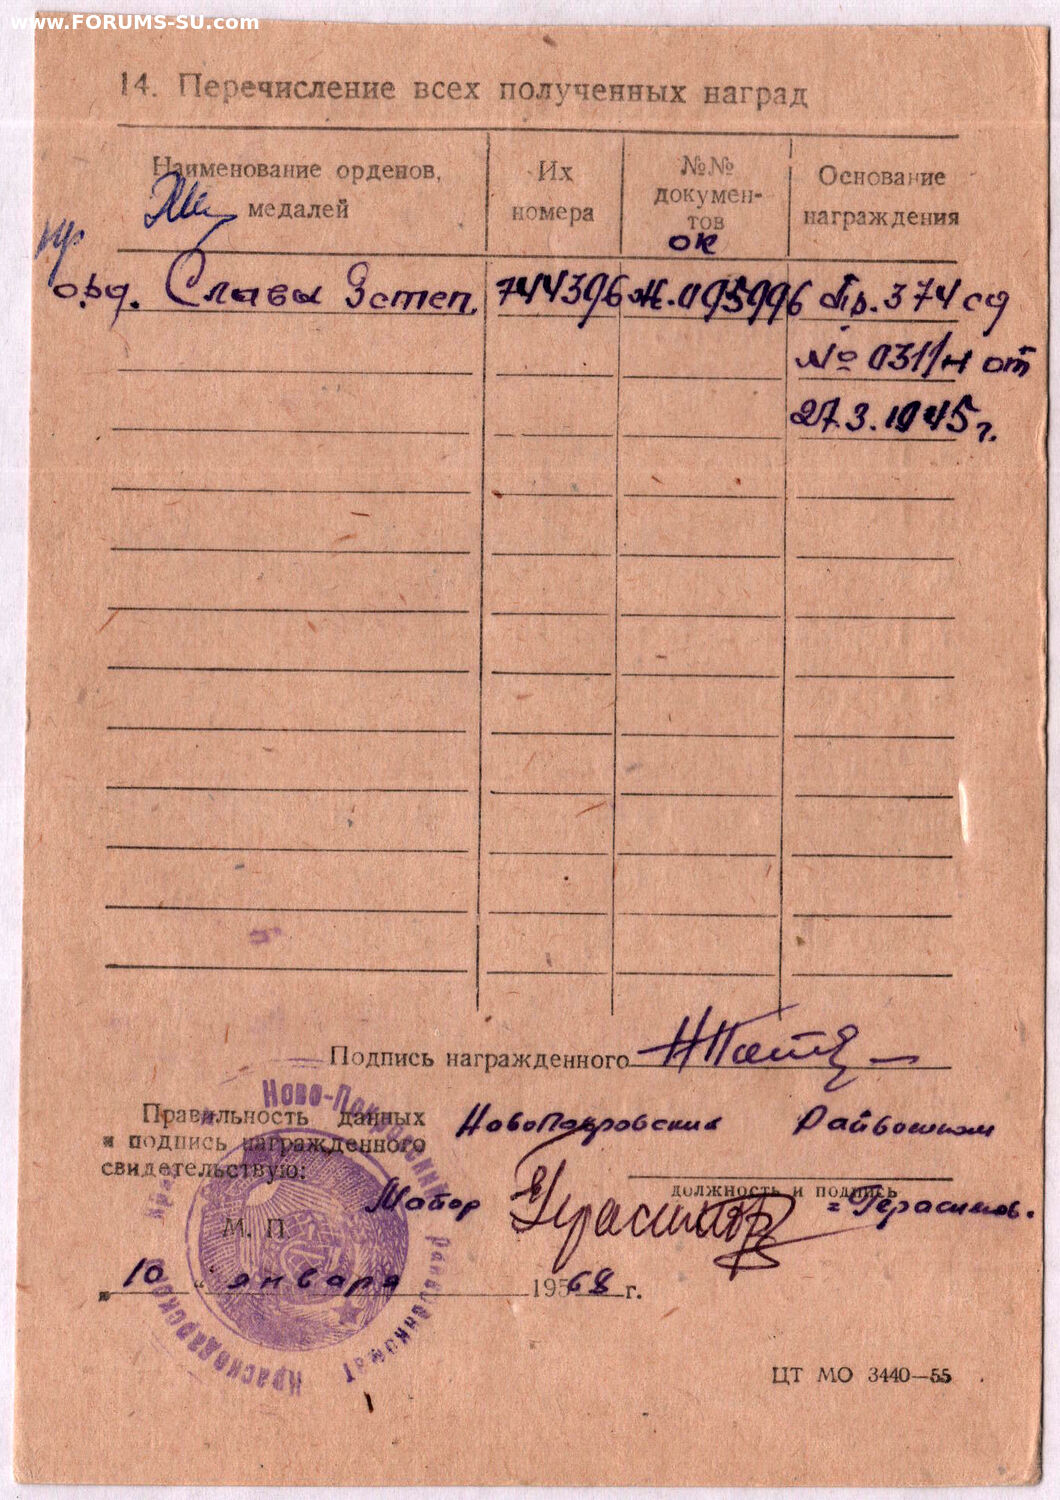 www.FORUMS-SU.com
14. Перечисление всех полученных наград
Наименование орденов, медалей
Их номера
№№ докумен-
тов
Основание награждения
ок
орд. Славы 3 степ. 744396 Ж.095996 Пр. 374 сд
№ 031/н от
27.3.1945 г.
Подпись награжденного
Правильность данных
и подпись награжденного
свидетельствую:
Новопокровский Райвоенком
должность и подпись
Майор Герасимов =Герасимов.
М. П.
"10 " января 195 68 г.
Ново-Покровский Райвоенкомат Краснодарского края
ЦТ МО 3440—55